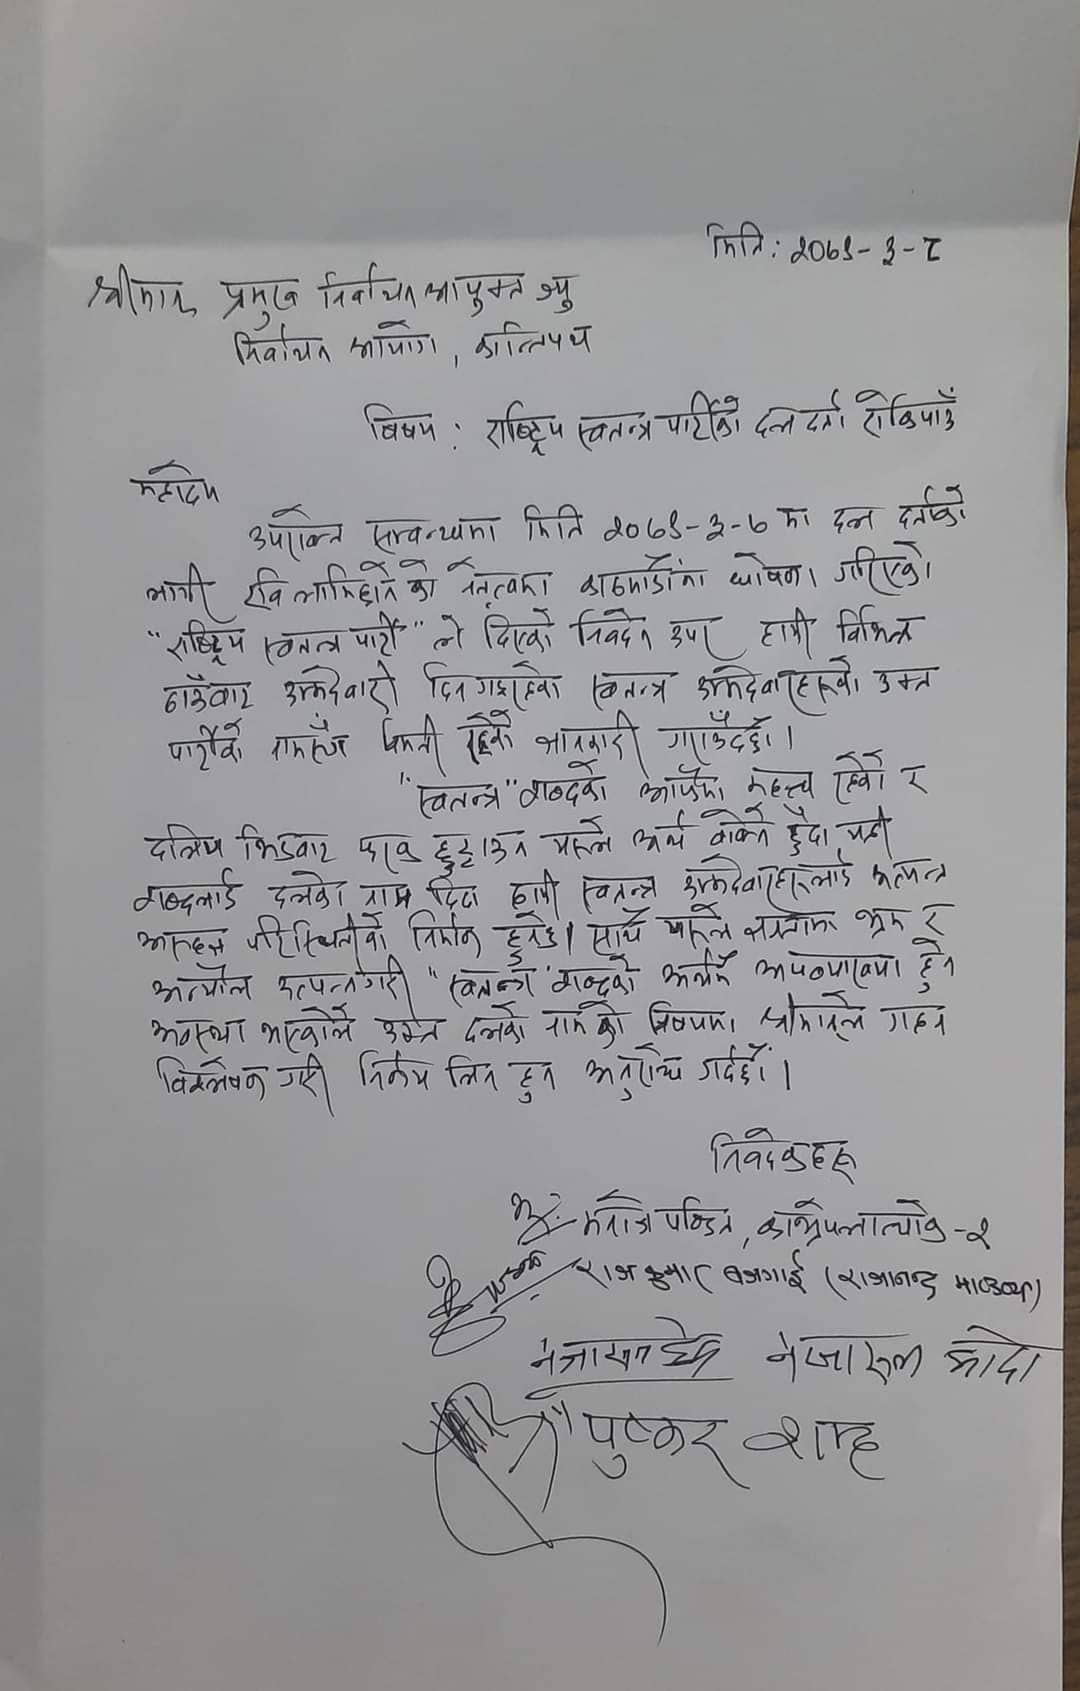 मिति: २०७९-३-८
श्रीमान् प्रमुख निर्वाचन आयुक्त ज्यु
निर्वाचन आयोग, कान्तिपथ
बिषय: राष्ट्रिय स्वतन्त्र पार्टीको दल दर्ता रोकिपाउँ
महोदय
उपरोक्त सम्बन्धमा मिति २०७९-३-७ मा दल दर्ताको
लागी रवि लामिछाने को नेतृत्वमा काठमाडौंमा घोषणा गरिएको
"राष्ट्रिय स्वतन्त्र पार्टी" ले दिएको निवेदन उपर हामी विभिन्न
ठाउँबाट उम्मेदवारी दिन गइरहेका स्वतन्त्र उम्मेदवारहरूको उक्त
पार्टीको नाममा असहमती रहेको जानकारी गराउँदछौं।
"स्वतन्त्र" शब्दको आफ्नै महत्त्व रहेको र
दलिय भिडबाट फरक छुट्टाउन यसले अर्थ बोक्ने हुँदा यही
शब्दलाई दलको नाम दिंदा हामी स्वतन्त्र उम्मेदवारहरूलाई अत्यन्त
असहज परिस्थितीको निर्माण हुनेछ। साथै यसले जनतामा भ्रम र
अन्यौल उत्पन्न गरी "स्वतन्त्र" शब्दको अर्थनै अपव्याख्या हुने
अवस्था भएकोले उक्त दलको नामको बिषयमा श्रीमानले गहन
विश्लेषण गरी निर्णय लिन हुन अनुरोध गर्दछौं।
निवेदकहरू
मनोज पण्डित, काभ्रेपलाञ्चोक-२
राज कुमार बजगाई (राजानन्द माण्डव्य)
पुष्कर शाह